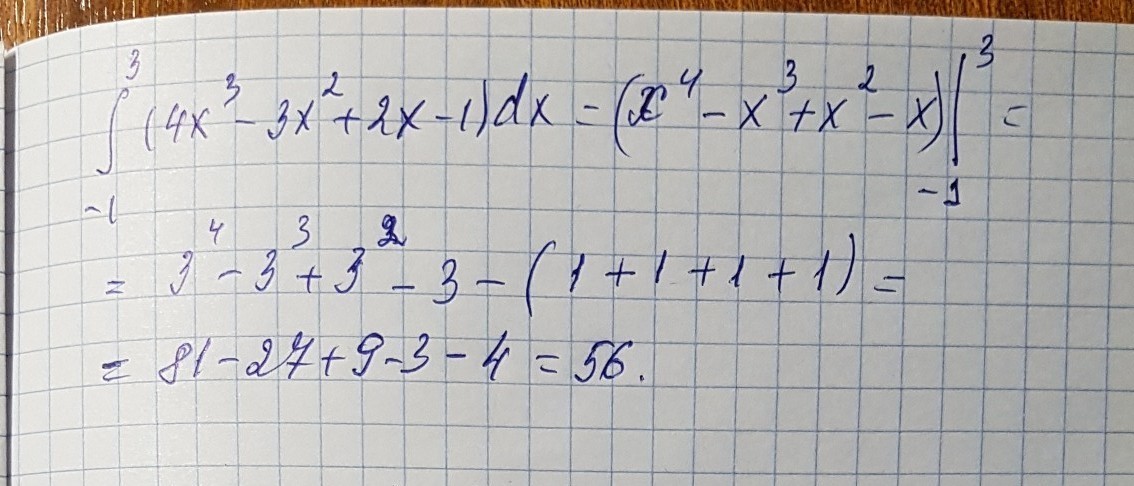 ∫₋₁³ (4x³ - 3x² + 2x - 1)dx = (x⁴ - x³ + x² - x)|₋₁³ =
= 3⁴ - 3³ + 3² - 3 - (1 + 1 + 1 + 1) =
= 81 - 27 + 9 - 3 - 4 = 56.